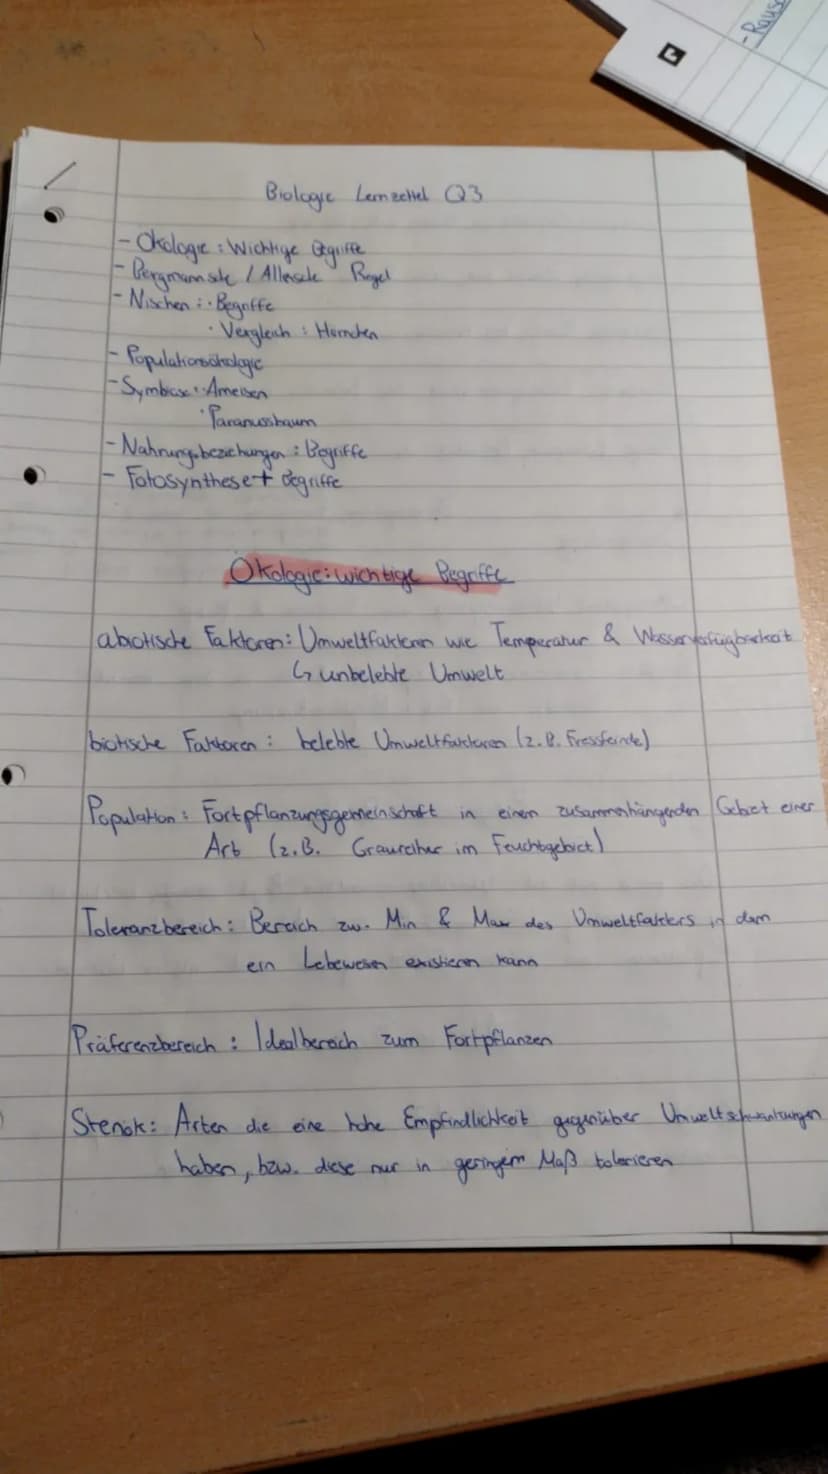 Biologie Lernzettel Q3
- Ökologie: Wichtige Begriffe
- Bergmannsche / Allensche Regel
- Nischen: · Begriffe
· Vergleich: Hörnchen
- Populationsökologie
- Symbiose: · Ameisen
· Paranussbaum
- Nahrungsbeziehungen: Begriffe
- Fotosynthese + Begriffe
Ökologie: wichtige Begriffe
abiotische Faktoren: Umweltfaktoren wie Temperatur & Wasserverfügbarkeit
↳ unbelebte Umwelt
biotische Faktoren: belebte Umweltfaktoren (z.B. Fressfeinde)
Population: Fortpflanzungsgemeinschaft in einem zusammenhängenden Gebiet einer
Art (z.B. Graureiher im Feuchtgebiet)
Toleranzbereich: Bereich zw. Min & Max des Umweltfaktors in dem
ein Lebewesen existieren kann
Präferenzbereich: Idealbereich zum Fortpflanzen
Stenök: Arten die eine hohe Empfindlichkeit gegenüber Umweltschwankungen
haben, bzw. diese nur in geringem Maß tolerieren